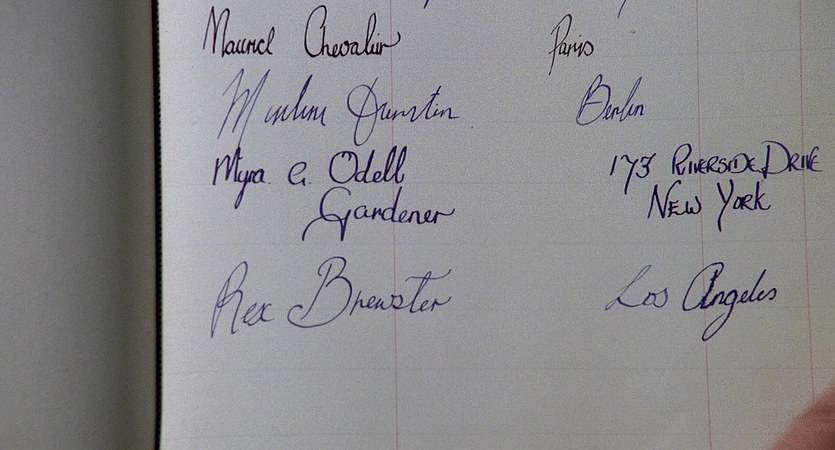 Maurice Chevalier Paris
Berlin
Myra G. Odell 173 RIVERSIDE DRIVE
Gardener NEW YORK
Rex Brewster Los Angeles